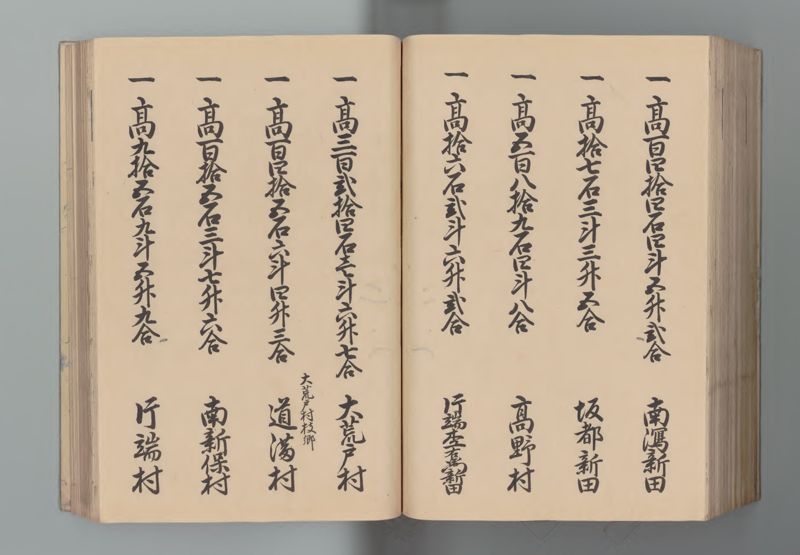 一 高百四拾四石四斗五升弐合 南潟新田
一 高拾七石三斗三升五合 坂都新田
一 高五百八拾九石四斗八合 高野村
一 高拾六石弐斗六升弐合 片端 新田
一 高三百弐拾四石壱斗六升七合 大荒戸村
大荒戸村枝郷
一 高百四拾五石六斗四升三合 道満村
一 高百拾五石三斗七升六合 南新保村
一 高九拾五石九斗五升九合 片端村